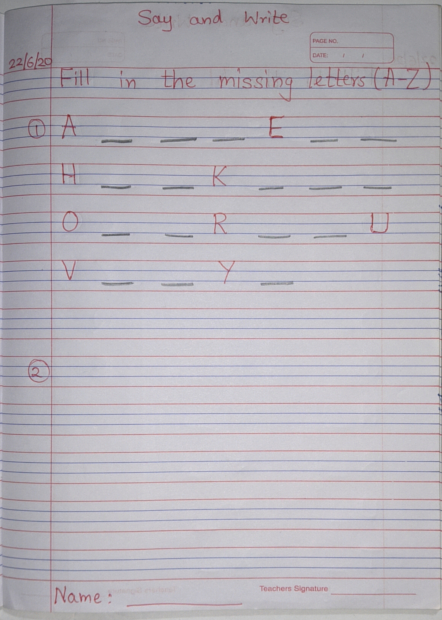 Say and Write
PAGE NO.
DATE: / /
22/6/20
Fill in the missing letters (A-Z)
① A _ _ _ E _ _
H _ _ K _ _ _
O _ _ R _ _ U
V _ _ Y _
②
Name: ________
Teachers Signature ________